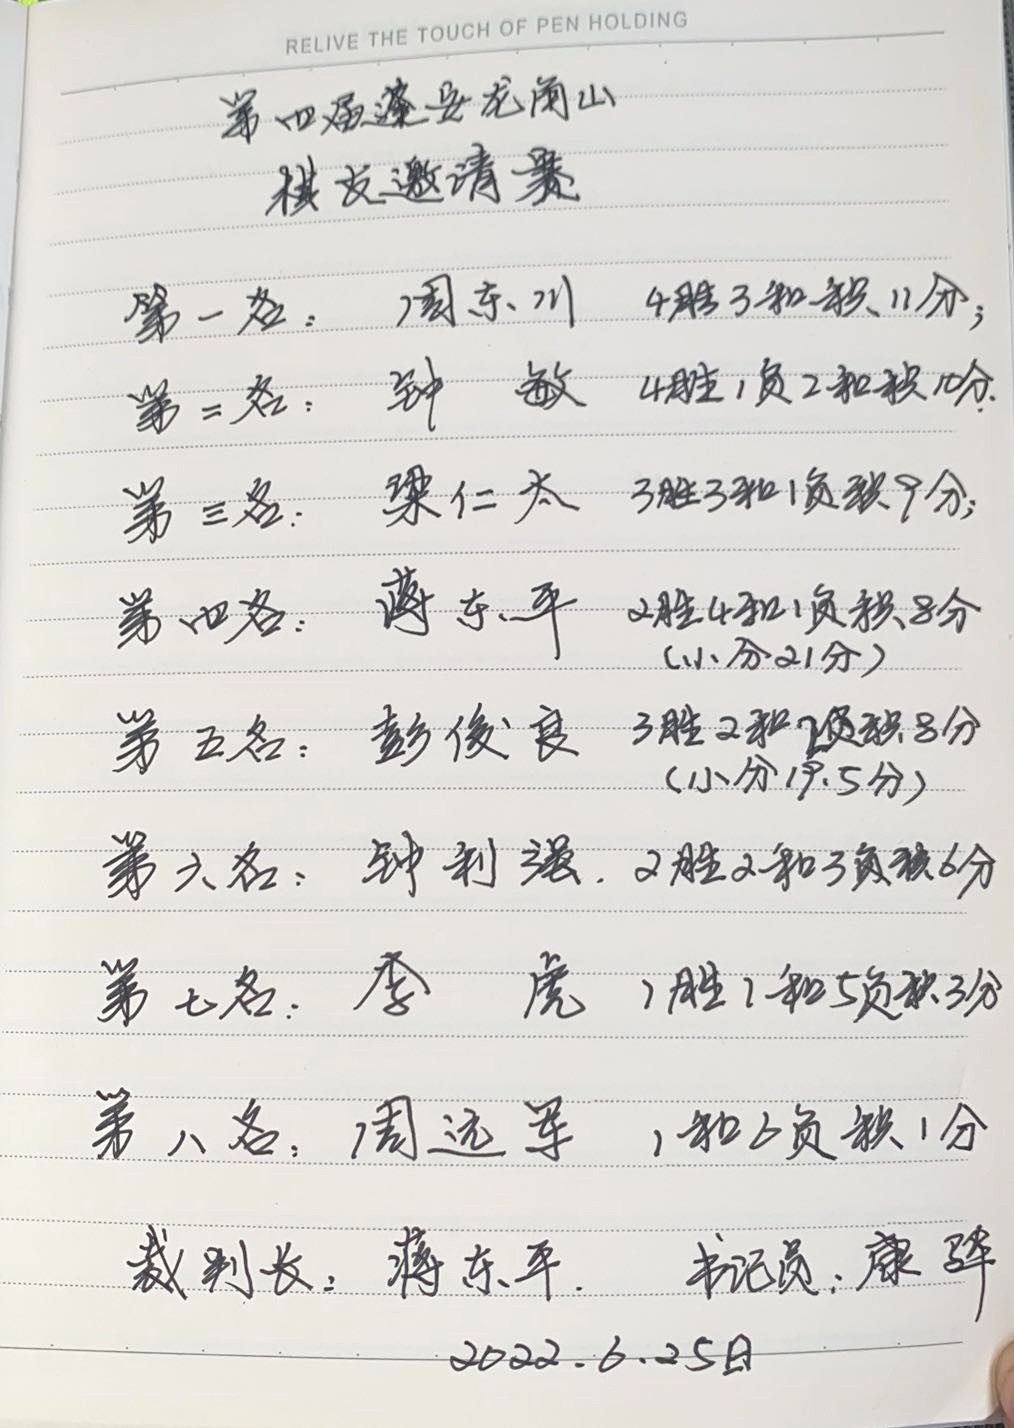 RELIVE THE TOUCH OF PEN HOLDING
第四届蓬安龙角山
棋友邀请赛
第一名： 周东川 4胜3和积11分；
第二名： 钟 敏 4胜1负2和积10分.
第三名： 梁仁太 3胜3和1负积9分；
第四名： 蒋东平 2胜4和1负积8分
（小分21分）
第五名： 彭俊良 3胜2和2负积8分
（小分19.5分）
第六名： 钟利强. 2胜2和3负积6分
第七名： 李 虎 1胜1和5负积3分
第八名： 周远军 1和6负积1分
裁判长：蒋东平. 书记员：康
2022.6.25日